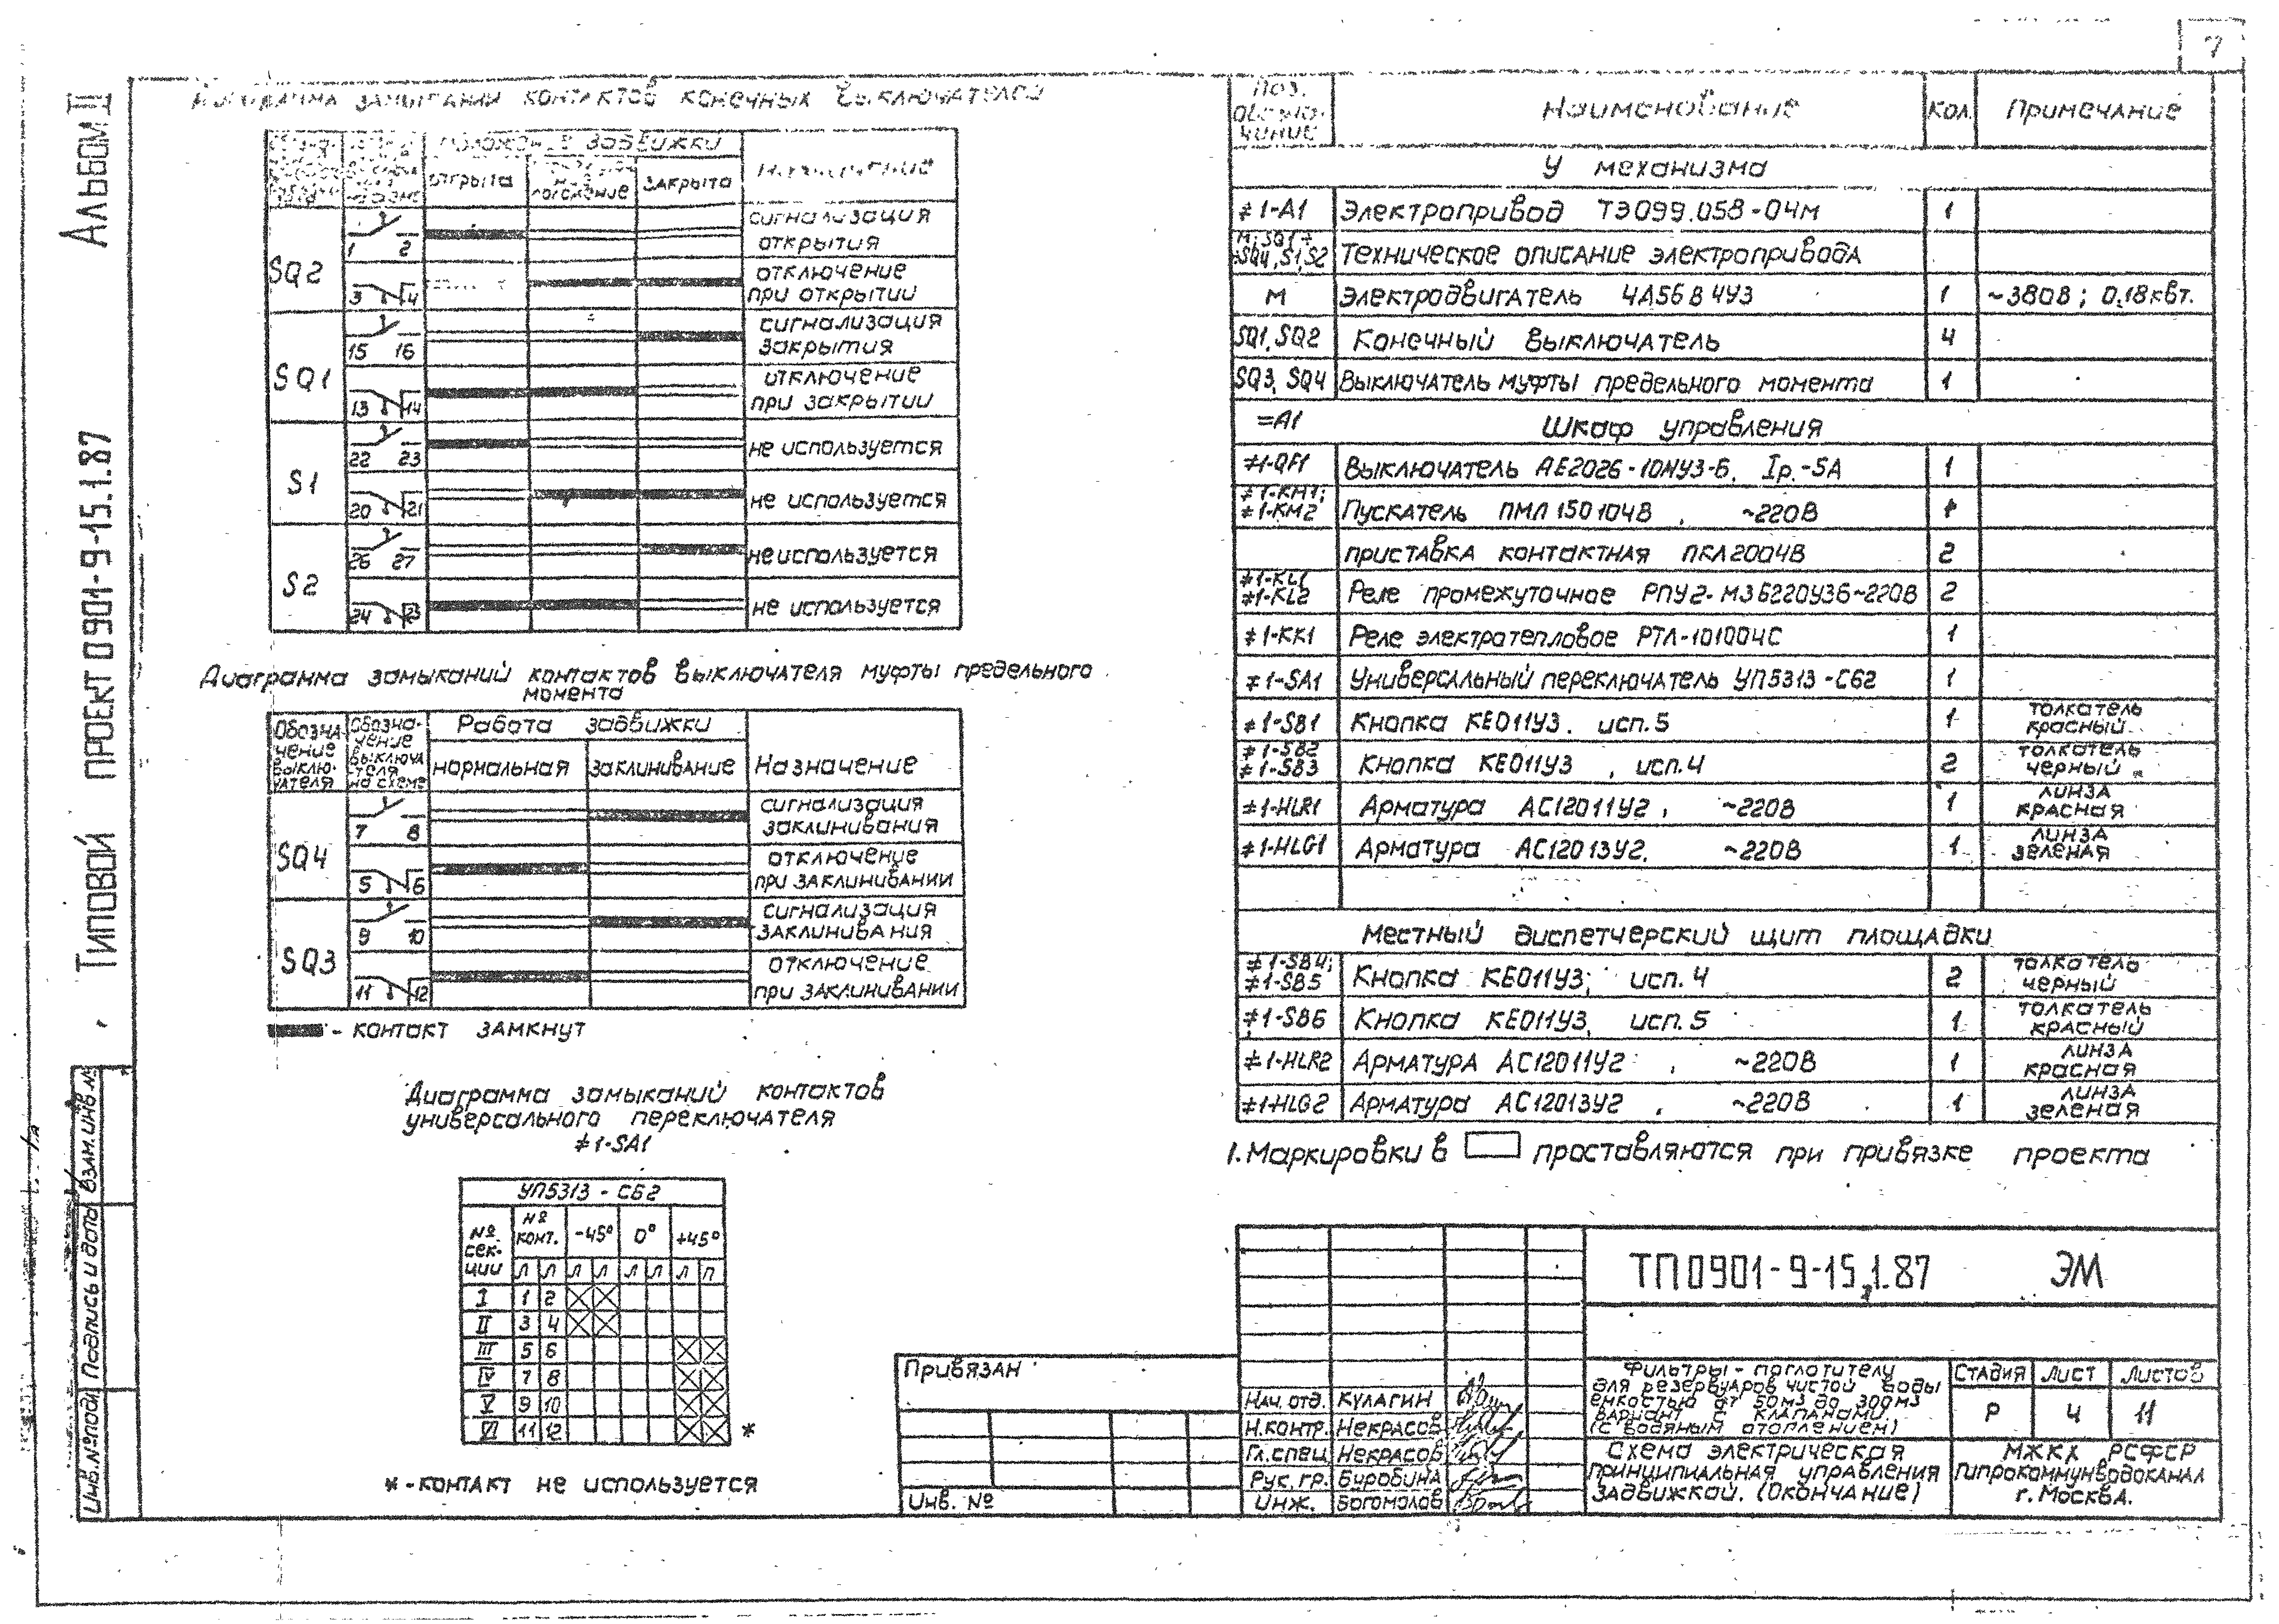 7
Альбом II
Типовой проект 0901-9-15.1.87
Взам.инв.№
Подпись и дата
Инв.№подл
Диаграмма замыкании контактов конечных выключателей
положение задвижки
открыта
положение
закрыта
Назначение
SQ2
1 2
сигнализация
открытия
3 4
отключение
при открытии
SQ1
15 16
сигнализация
закрытия
13 14
отключение
при закрытии
S1
22 23
не используется
20 21
не используется
S2
26 27
не используется
24 25
не используется
Диаграмма замыканий контактов выключателя муфты предельного
момента
Обозна-
чение
выклю-
чателя
Обозна-
чение
выключа
теля
на схеме
Работа задвижки
нормальная
заклинивание
Назначение
SQ4
7 8
сигнализация
заклинивания
5 6
отключение
при заклинивании
SQ3
9 10
сигнализация
заклинивания
11 12
отключение
при заклинивании
- контакт замкнут
Диаграмма замыканий контактов
универсального переключателя
≠1-SA1
УП5313 - С62
№
сек-
ции
№
конт.
-45° 0° +45°
Л Л Л Л Л Л Л П
I 1 2
II 3 4
III 5 6
IV 7 8
V 9 10
VI 11 12
*
* - контакт не используется
Поз.
обозна-
чение
Наименование
Кол.
Примечание
У механизма
≠1-А1 Электропривод ТЭ099.058-04М 1
М; SQ1÷
÷SQ4, S1, S2 Техническое описание электропривода
М Электродвигатель 4А56В4У3 1 ~380В; 0.18квт.
SQ1, SQ2 Конечный выключатель 4
SQ3, SQ4 Выключатель муфты предельного момента 1
=А1 Шкаф управления
≠1-QF1 Выключатель АЕ2026-10НУ3-Б. Iр.-5А 1
≠1-КМ1;
≠1-КМ2 Пускатель ПМЛ 150104В , ~220В
приставка контактная ПКЛ2004В 2
≠1-KL1
≠1-KL2 Реле промежуточное РПУ2-М3Б220У3Б~220В 2
≠1-КК1 Реле электротепловое РТЛ-101004С 1
≠1-SA1 Универсальный переключатель УП5313-С62 1
≠1-SB1 Кнопка КЕ011У3. исп.5 1 толкатель
красный
≠1-SB2
≠1-SB3 Кнопка КЕ011У3 , исп.4 2 толкатель
черный
≠1-HLR1 Арматура АС12011У2 , ~220В 1 линза
красная
≠1-HLG1 Арматура АС12013У2. ~220В 1 линза
зеленая
Местный диспетчерский щит площадки
≠1-SB4;
≠1-SB5 Кнопка КЕ011У3; исп. 4 2 толкатель
черный
≠1-SB6 Кнопка КЕ011У3, исп. 5 1 толкатель
красный
≠1-HLR2 Арматура АС12011У2 , ~220В 1 линза
красная
≠1-HLG2 Арматура АС12013У2 , ~220В 1 линза
зеленая
1. Маркировки в проставляются при привязке проекта
Привязан
Инв. №
Нач. отд. Кулагин
Н.контр. Некрасов
Гл.спец. Некрасов
Рук. гр. Буробина
Инж. Богомолов
ТП 0901-9-15.1.87 ЭМ
Фильтры-поглотители
для резервуаров чистой воды
емкостью от 50м3 до 300м3
вариант с клапанами.
(с водяным отоплением)
Стадия Лист Листов
Р 4 11
Схема электрическая
принципиальная управления
задвижкой. (окончание)
МЖКХ РСФСР
Гипрокоммунводоканал
г. Москва.